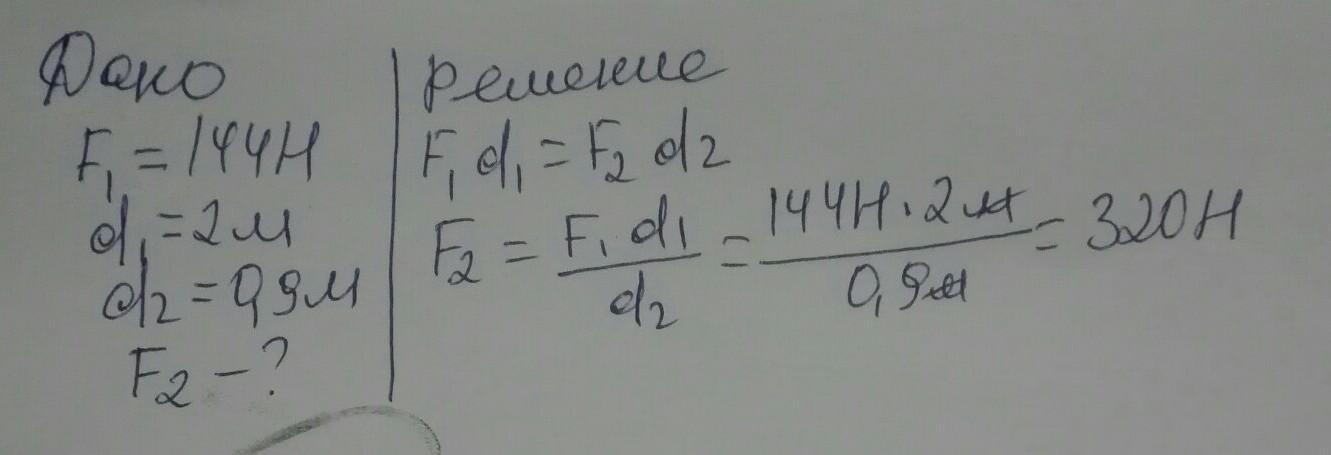 Дано
F₁ = 144Н
d₁ = 2м
d₂ = 0,9м
F₂ – ?
решение
F₁ d₁ = F₂ d₂
F₂ = F₁ d₁ / d₂ = 144Н · 2м / 0,9м = 320Н